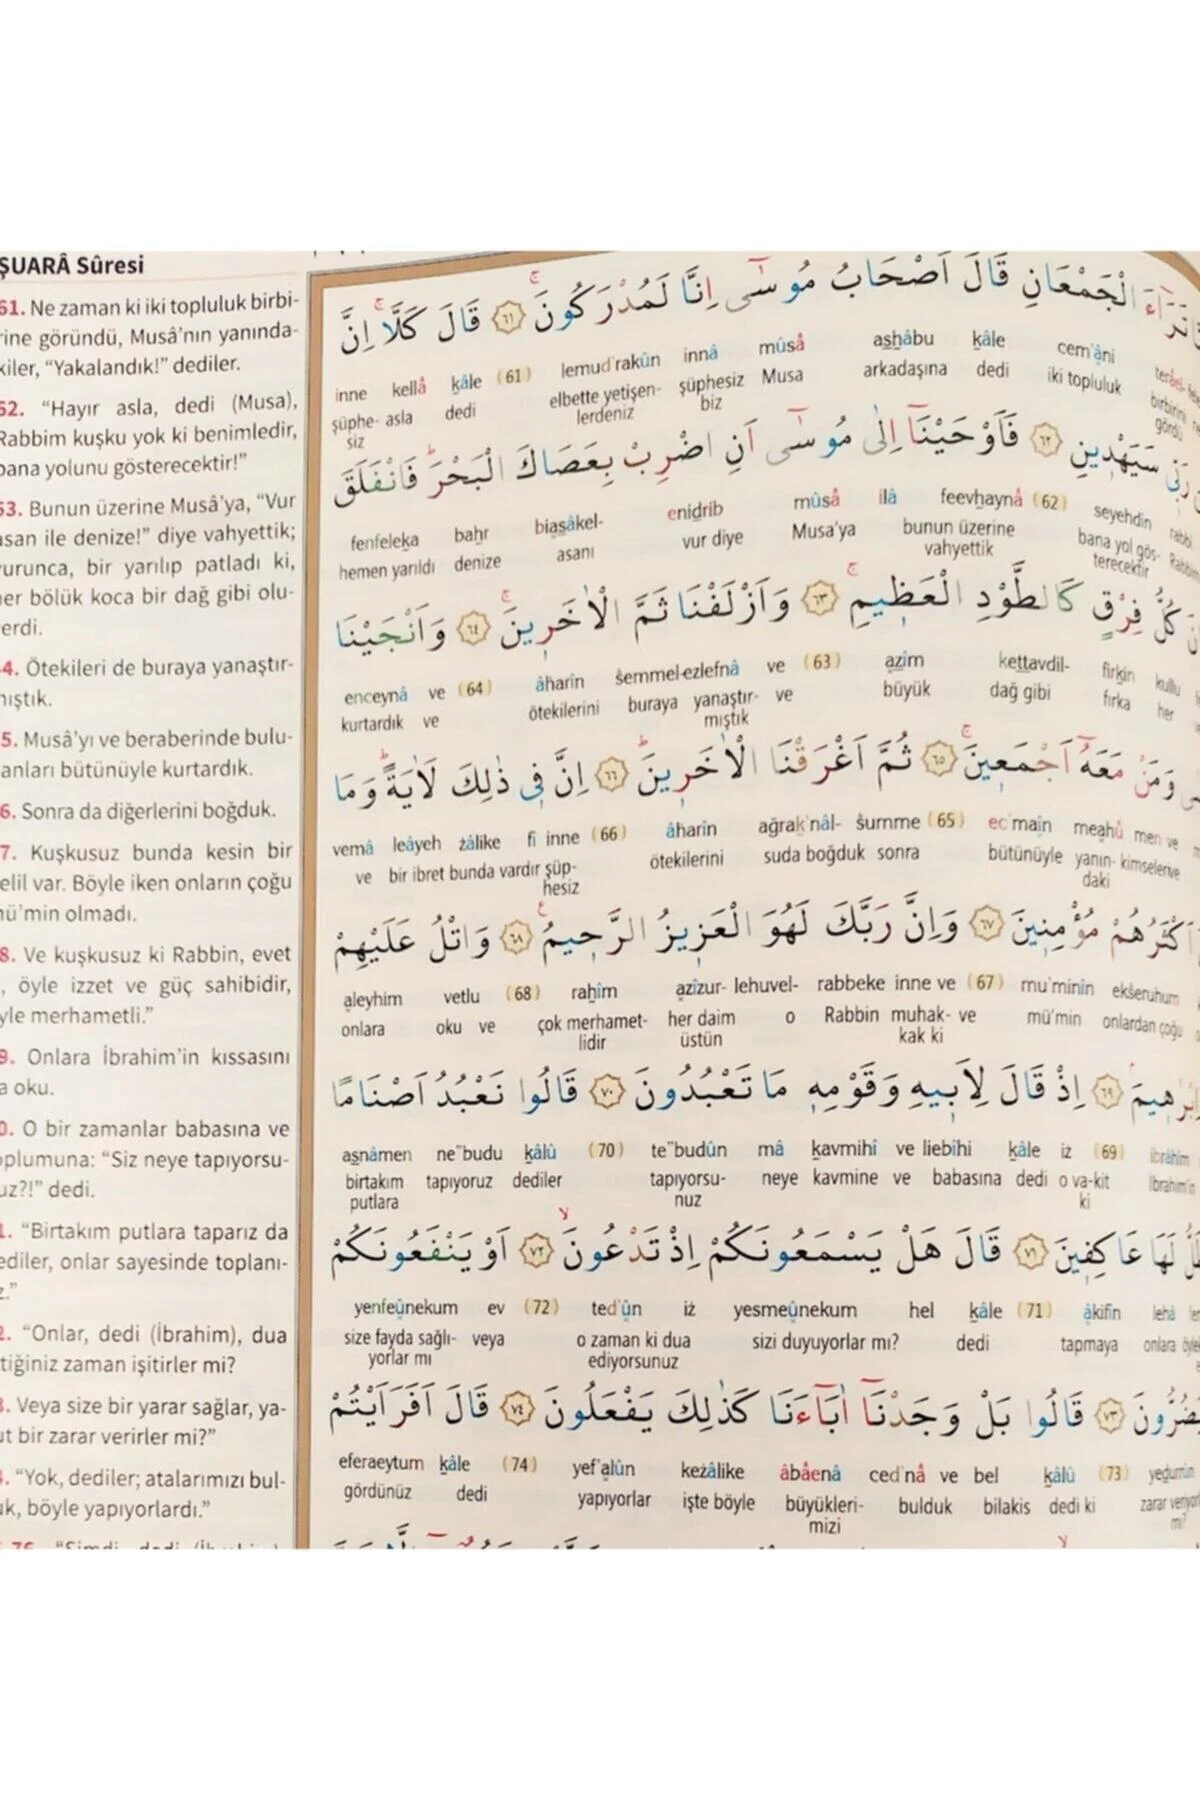 ŞUARÂ Sûresi
61. Ne zaman ki iki topluluk birbi-
rine göründü, Musâ’nın yanında-
kiler, “Yakalandık!” dediler.
62. “Hayır asla, dedi (Musa),
Rabbim kuşku yok ki benimledir,
bana yolunu gösterecektir!”
63. Bunun üzerine Musâ’ya, “Vur
asan ile denize!” diye vahyettik;
vurunca, bir yarılıp patladı ki,
her bölük koca bir dağ gibi olu-
verdi.
4. Ötekileri de buraya yanaştır-
mıştık.
5. Musâ’yı ve beraberinde bulu-
anları bütünüyle kurtardık.
6. Sonra da diğerlerini boğduk.
7. Kuşkusuz bunda kesin bir
elil var. Böyle iken onların çoğu
mü’min olmadı.
8. Ve kuşkusuz ki Rabbin, evet
, öyle izzet ve güç sahibidir,
yle merhametli.”
9. Onlara İbrahim’in kıssasını
a oku.
0. O bir zamanlar babasına ve
oplumuna: “Siz neye tapıyorsu-
uz?!” dedi.
1. “Birtakım putlara taparız da
ediler, onlar sayesinde toplanı-
z.”
2. “Onlar, dedi (İbrahim), dua
tiğiniz zaman işitirler mi?
3. Veya size bir yarar sağlar, ya-
ut bir zarar verirler mi?”
4. “Yok, dediler; atalarımızı bul-
uk, böyle yapıyorlardı.”
الْجَمْعَانِ قَالَ اَصْحَابُ مُوسٰٓى اِنَّا لَمُدْرَكُونَ ﴿٦١﴾ قَالَ كَلَّا اِنَّ
inne kellâ kâle (61) lemud'rakûn innâ mûsâ ashâbu kâle cem'âni
şüphe- asla dedi elbette yetişen- şüphesiz Musa arkadaşına dedi iki topluluk birbirini
siz lerdeniz biz gördü
رَبّٖى سَيَهْدٖينِ ﴿٦٢﴾ فَاَوْحَيْنَٓا اِلٰى مُوسٰٓى اَنِ اضْرِبْ بِعَصَاكَ الْبَحْرَ فَانْفَلَقَ
fenfeleka bahr biasâkel- enidrib mûsâ ilâ feevhaynâ (62) seyehdin rabbî
hemen yarıldı denize asanı vur diye Musa'ya bunun üzerine bana yol gös- Rabbim
vahyettik terecektir
كُلُّ فِرْقٍ كَالطَّوْدِ الْعَظٖيمِ ﴿٦٣﴾ وَاَزْلَفْنَا ثَمَّ الْاٰخَرٖينَ ﴿٦٤﴾ وَاَنْجَيْنَا
enceynâ ve (64) âharîn semmel-ezlefnâ ve (63) azîm kettavdil- firkin kullu
kurtardık ve ötekilerini buraya yanaştır- ve büyük dağ gibi fırka her
mıştık
وَمَنْ مَعَهُٓ اَجْمَعٖينَ ﴿٦٥﴾ ثُمَّ اَغْرَقْنَا الْاٰخَرٖينَ ﴿٦٦﴾ اِنَّ فٖى ذٰلِكَ لَاٰيَةً وَمَا
vemâ leâyeh zâlike fî inne (66) âharîn ağrak'nâl- summe (65) ec'maîn meahû men ve
ve bir ibret bunda vardır şüp- ötekilerini suda boğduk sonra bütünüyle yanın- kimseleri ve
hesiz daki
اَكْثَرُهُمْ مُؤْمِنٖينَ ﴿٦٧﴾ وَاِنَّ رَبَّكَ لَهُوَ الْعَزٖيزُ الرَّحٖيمُ ﴿٦٨﴾ وَاتْلُ عَلَيْهِمْ
aleyhim vetlu (68) rahîm azîzur- lehuvel- rabbeke inne ve (67) mu'minîn ekseruhum
onlara oku ve çok merhamet- her daim o Rabbin muhak- ve mü'min onlardan çoğu
lidir üstün kak ki
اِبْرٰهٖيمَ ﴿٦٩﴾ اِذْ قَالَ لِاَبٖيهِ وَقَوْمِهٖ مَا تَعْبُدُونَ ﴿٧٠﴾ قَالُوا نَعْبُدُ اَصْنَامًا
asnâmen ne"budu kâlû (70) te"budûn mâ kavmihî ve liebîhi kâle iz (69) ibrâhîm
birtakım tapıyoruz dediler tapıyorsu- neye kavmine ve babasına dedi o va-kit İbrahim'in
putlara nuz ki
لَهَا عَاكِفٖينَ ﴿٧١﴾ قَالَ هَلْ يَسْمَعُونَكُمْ اِذْ تَدْعُونَ ﴿٧٢﴾ اَوْ يَنْفَعُونَكُمْ
yenfeûnekum ev (72) ted'ûn iz yesmeûnekum hel kâle (71) âkifîn lehâ
size fayda sağlı- veya o zaman ki dua sizi duyuyorlar mı? dedi tapmaya onlara
yorlar mı ediyorsunuz
يَضُرُّونَ ﴿٧٣﴾ قَالُوا بَلْ وَجَدْنَٓا اٰبَٓاءَنَا كَذٰلِكَ يَفْعَلُونَ ﴿٧٤﴾ قَالَ اَفَرَاَيْتُمْ
eferaeytum kâle (74) yef'alûn kezâlike âbâenâ ced'nâ ve bel kâlû (73) yedurrûn
gördünüz dedi yapıyorlar işte böyle büyükleri- bulduk bilakis dedi ki zarar
mizi mı?